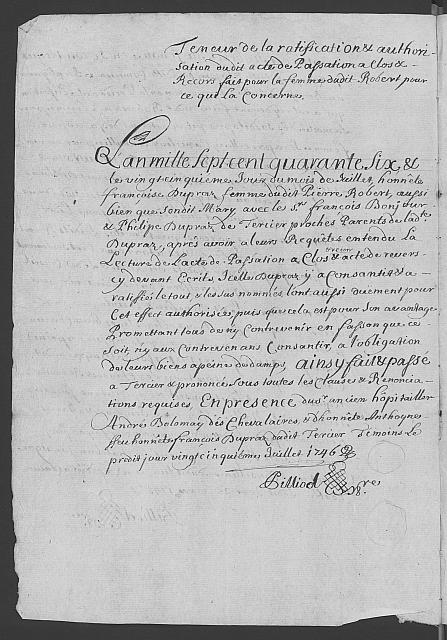 Teneur de la ratification & authori-
sation dudit acte de Passation a Clos &
Recors fait pour la femme dudit Robert pour
ce que la Concerne.
L'an mille Sept cent quarante Six, &
le vingt cinquieme Jour du mois de Juillet, honnête
françoise Dupraz femme dudit Pierre Robert, aussi
bien que sondit Mary, avec le Sr. françois Bonjour
& Philipe Dupraz de Tercier proches Parents de ladte
Dupraz, apres avoir a leurs Requêtes entendu La
Lecture de L'acte de Passation a Clos & acte de revers
cy devant Ecrits, Icelle Dupraz y a Consantis & a
ratiffié le tout, & les sus nommés l'ont aussi duement pour
Cet effect authorisée, puis que cela est pour son avantage
Promettant tous de n'y Contrevenir en fasson que ce
soit, ny aux Contrevenans Consantir, a l'obligation
de leurs biens a peine des damps, ainsy fait & passé
a Tercier & prononcé sous toutes les Clauses & Renoncia-
tions requises, En presence du Sr. ancien hôpitailler
André Dolomay des Chevalaires, & d'honnête Anthoyne
ffeu honnête françois Dupraz dudit Tercier Temoins Le
predit jour vingt cinquieme Juillet 1746
Pilliod